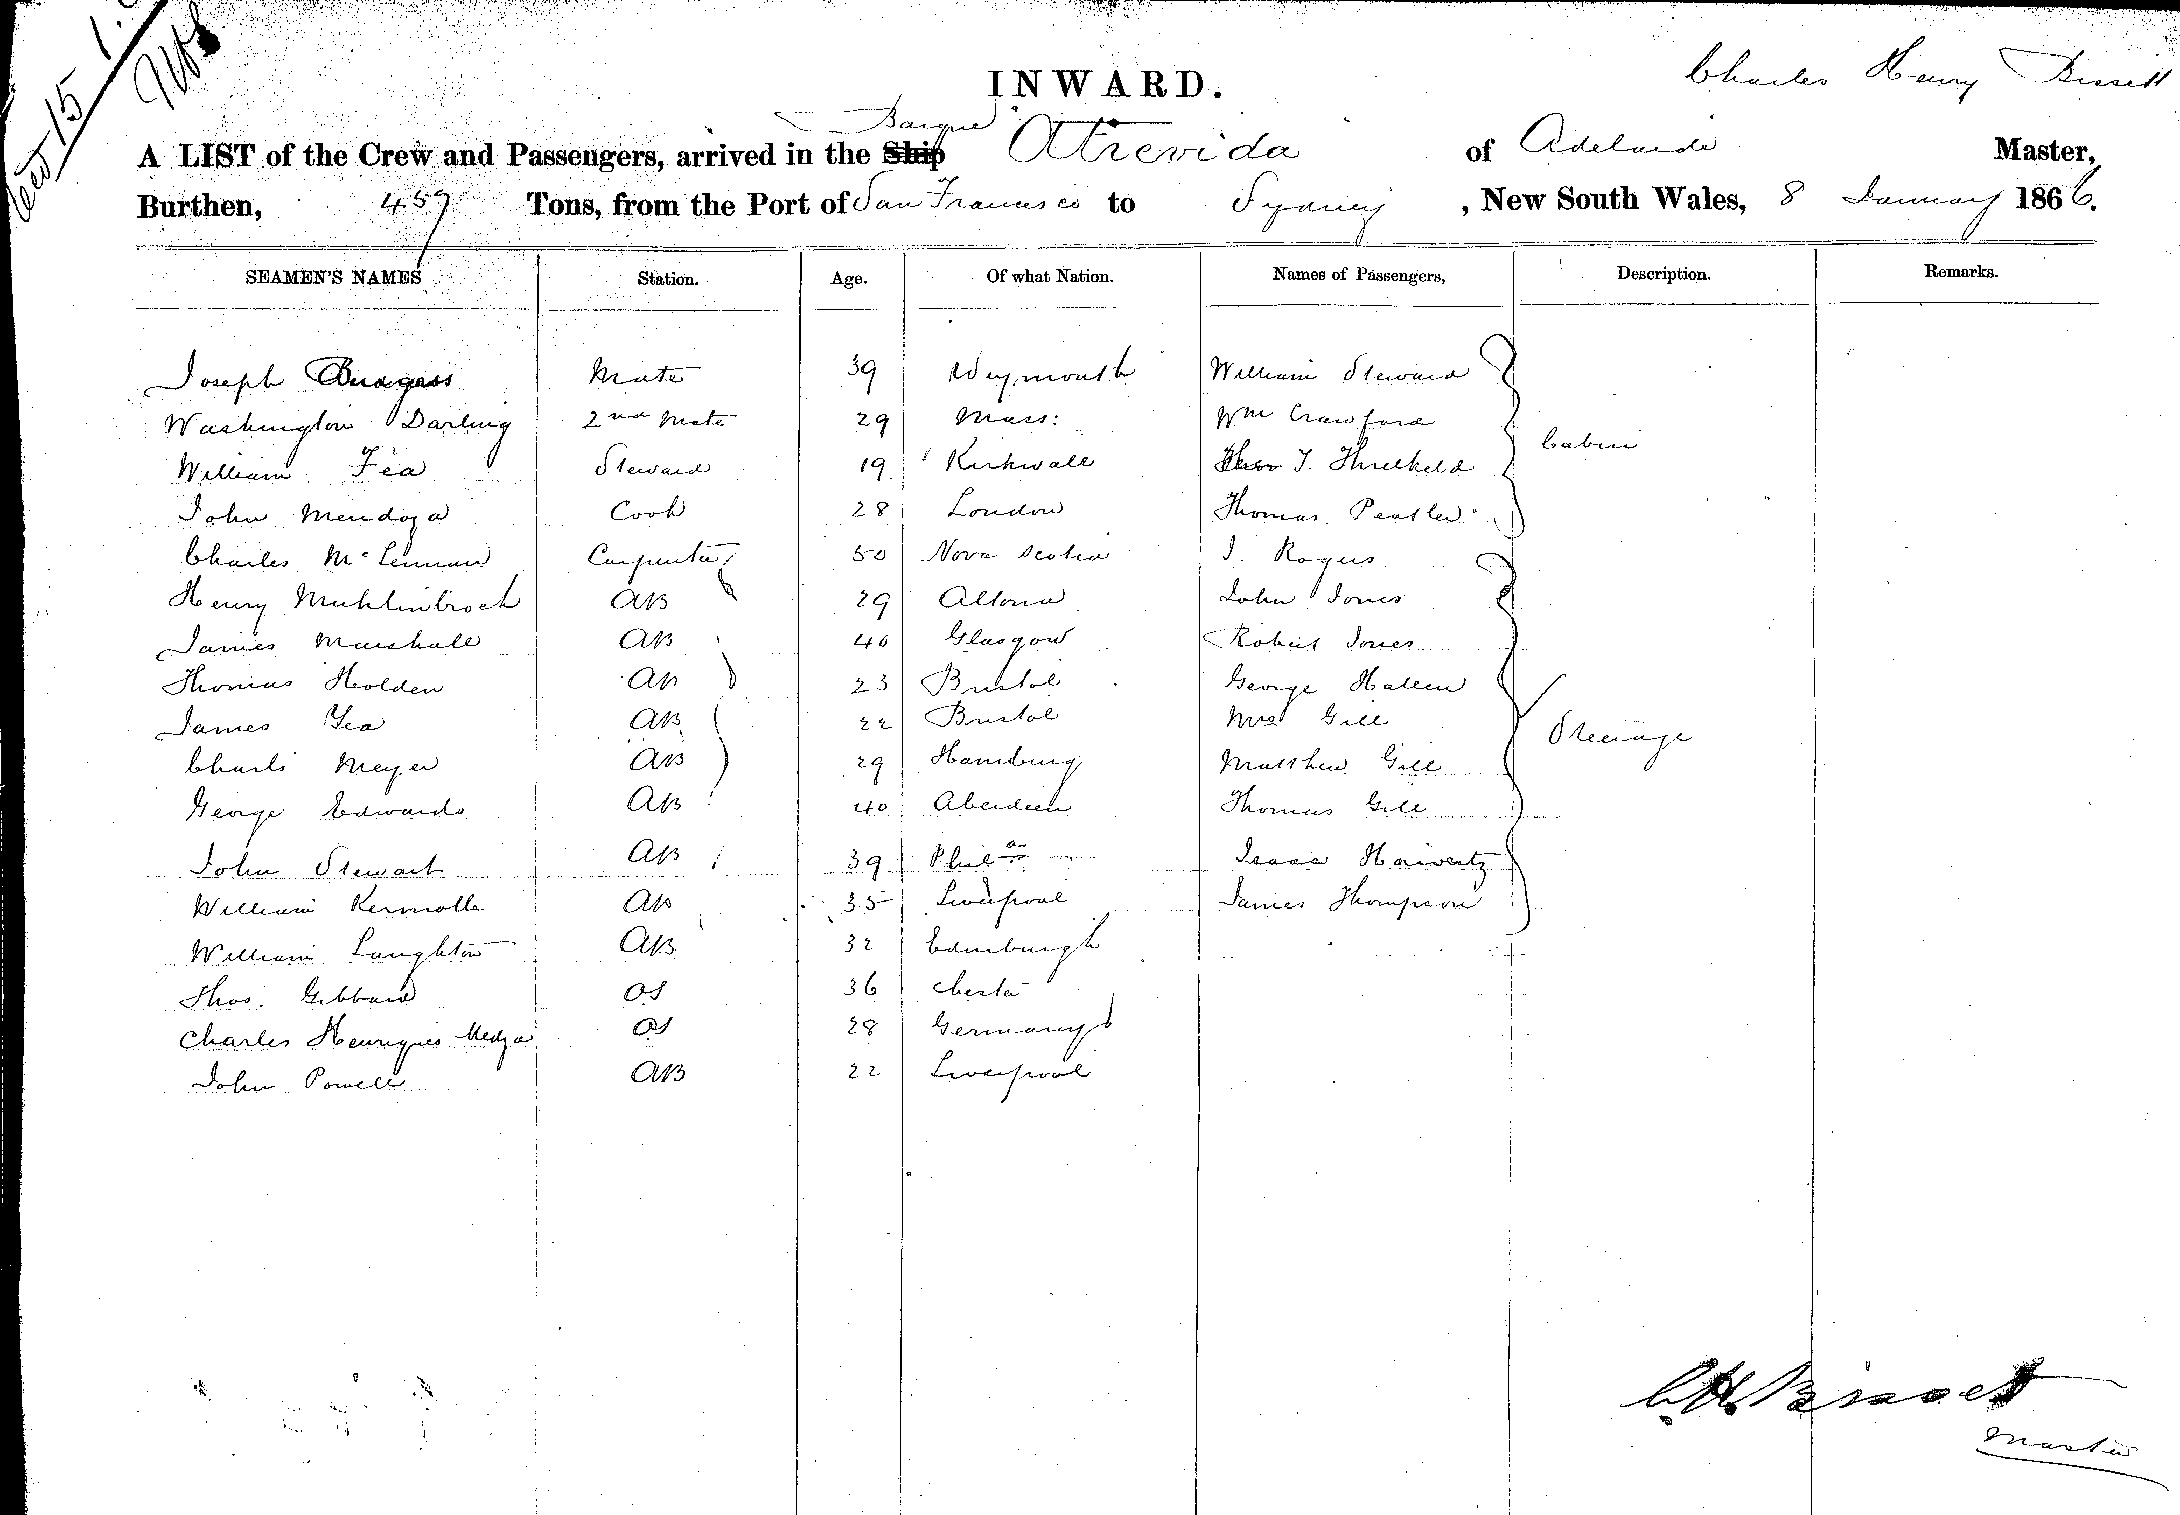 INWARD.
Charles Henry Bissett
Barque
A LIST of the Crew and Passengers, arrived in the Ship Atrevida of Adelaide Master,
Burthen, 459 Tons, from the Port of San Francisco to Sydney, New South Wales, 8 January 1866.
SEAMEN'S NAMES Station. Age. Of what Nation. Names of Passengers, Description. Remarks.
Joseph Burgess Mate 39 Weymouth William Steward
Washington Darling 2nd Mate 29 Mass: Wm Crawford
Cabin
William Fea Steward 19 Kirkwall T. Threlkeld
John Mendoza Cook 28 London Thomas
Charles McLennan Carpenter 50 Nova Scotia J. Rogers
Henry AB 29 Altona John Jones
James Marshall AB 40 Glasgow Robert Jones
Thomas Holden AB 23 Bristol George Hallen
James Yea AB 22 Bristol Mrs Gill
Steerage
Charles Meyer AB 29 Hamburg Matthew Gill
George Edwards AB 40 Aberdeen Thomas Gill
John Stewart AB 39 Phila Isaac Horwertz
William AB 35 Liverpool James Thompson
William Laughton AB 32 Edinburgh
Thos. Gibbard OS 36 Chester
Charles Henriques OS 28 Germany
John Powell AB 22 Liverpool
C.H. Bissett
Master